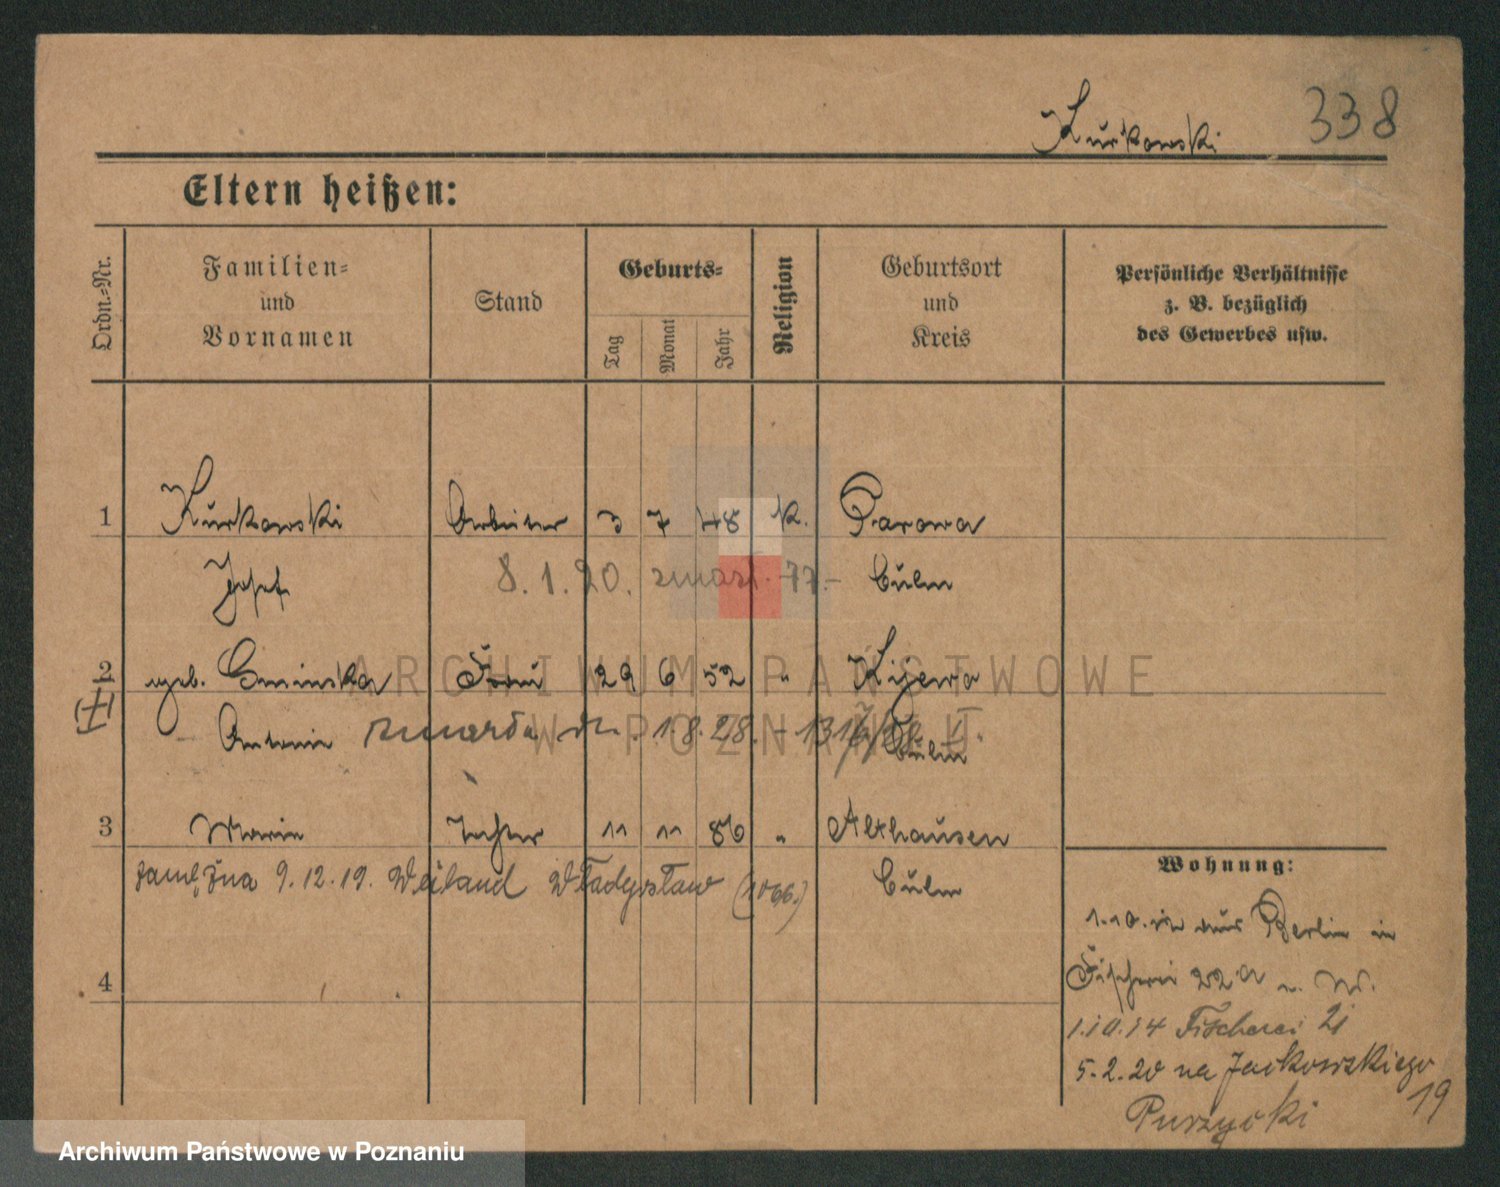 Kurkowski 338
Eltern heißen:
Ordn.-Nr.
Familien-
und
Vornamen
Stand
Geburts-
Tag
Monat
Jahr
Religion
Geburtsort
und
Kreis
Persönliche Verhältnisse
z. B. bezüglich
des Gewerbes usw.
1 Kurkowski Arbeiter 3 7 48 k. Parowa
Josef 8.1.20. zmarł 77 Culm
2 geb. Gminska Frau 29 6 52 " Kijewo
Antonie zmarła dn. 1.8.28. Culm
3 Marie Tochter 11 11 86 " Althausen
zamężna 9.12.19. Weiland Władysław (1066.) Culm
4
Wohnung:
1.10. aus Berlin in
Fischerei 22a
1.10.14 Fischerei 21
5.2.20 na Jackowskiego
19
Purzycki
ARCHIWUM PAŃSTWOWE
W POZNANIU
Archiwum Państwowe w Poznaniu